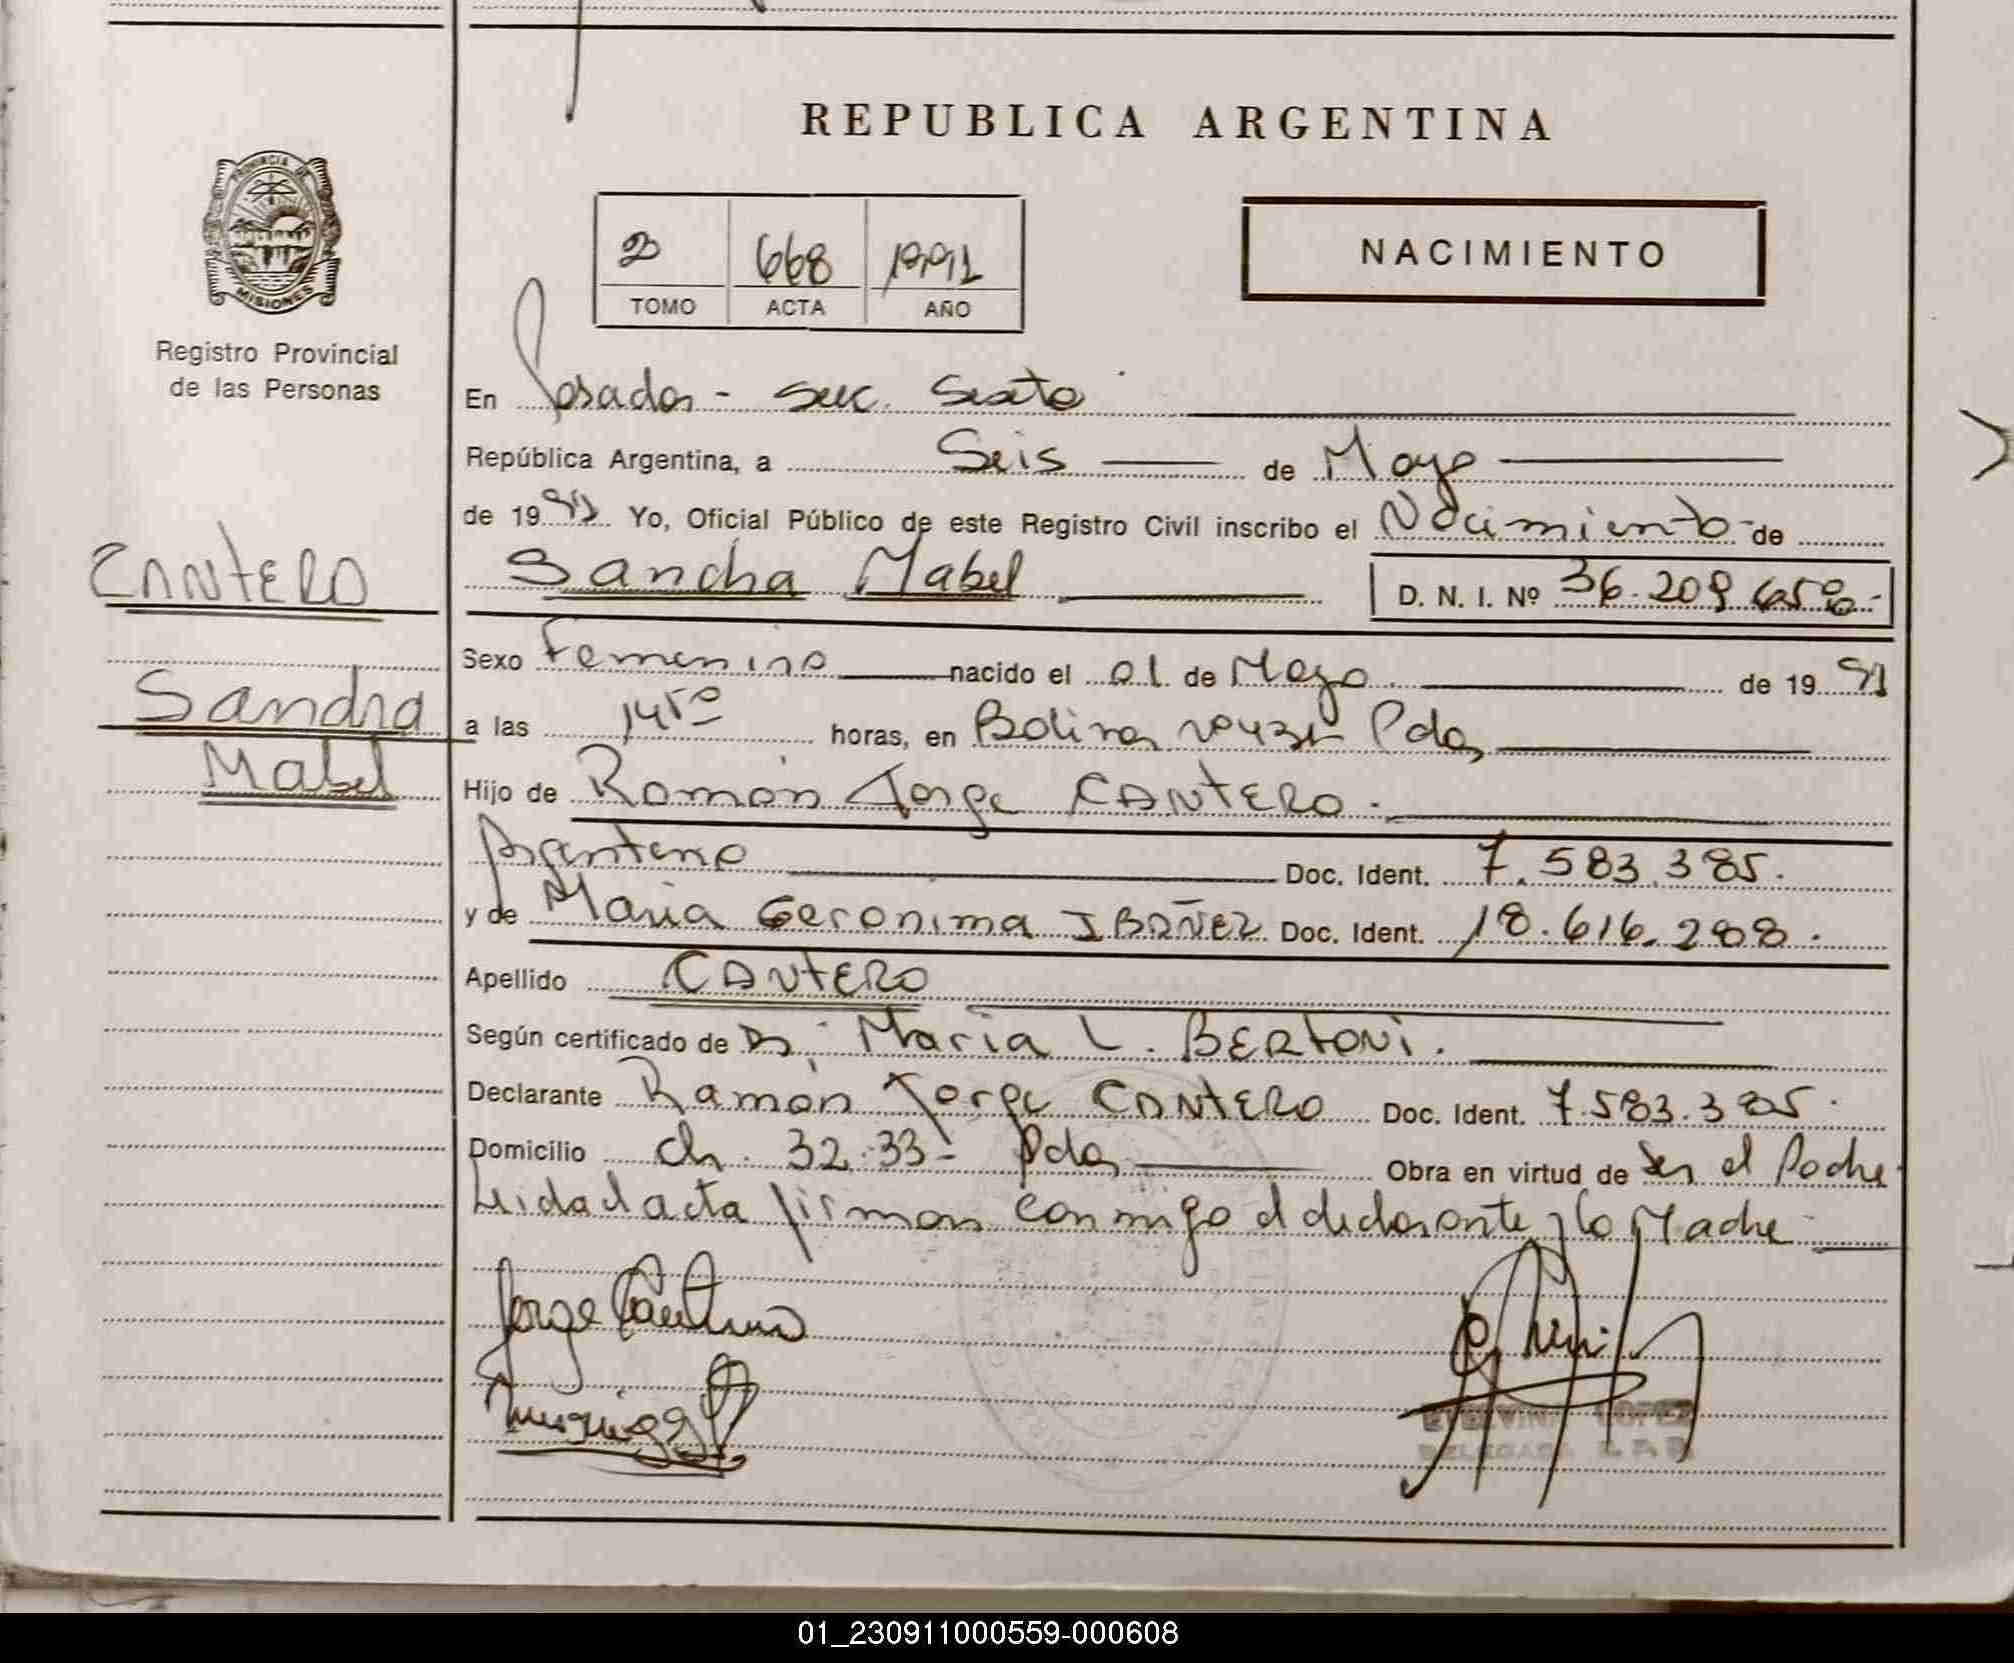 REPUBLICA ARGENTINA
PROVINCIA DE
MISIONES
Registro Provincial
de las Personas
2 668 1991
TOMO ACTA AÑO
NACIMIENTO
En Posadas - Secc. Sexta
República Argentina, a Seis de Mayo
de 1991 Yo, Oficial Público de este Registro Civil inscribo el Nacimiento de
CANTERO
Sandra Mabel
D. N. I. Nº 36.209.650.-
Sexo Femenino nacido el 01 de Mayo de 1991
Sandra
Mabel
a las 1450 horas, en Bolivar Nº Pdas
Hijo de Ramón Jorge CANTERO.
Argentino Doc. Ident. 7.583.385.
y de Maria Geronima IBAÑEZ Doc. Ident. 18.616.288.
Apellido CANTERO
Según certificado de Dr. Maria L. BERTONI.
Declarante Ramón Jorge CANTERO Doc. Ident. 7.583.385.
Domicilio Ch. 32-33- Pdas Obra en virtud de Ser el Padre
Leida el acta firman conmigo el declarante y la Madre
Jorge Cantero
LOPEZ
DELEGADA R. P. P.
01_230911000559-000608